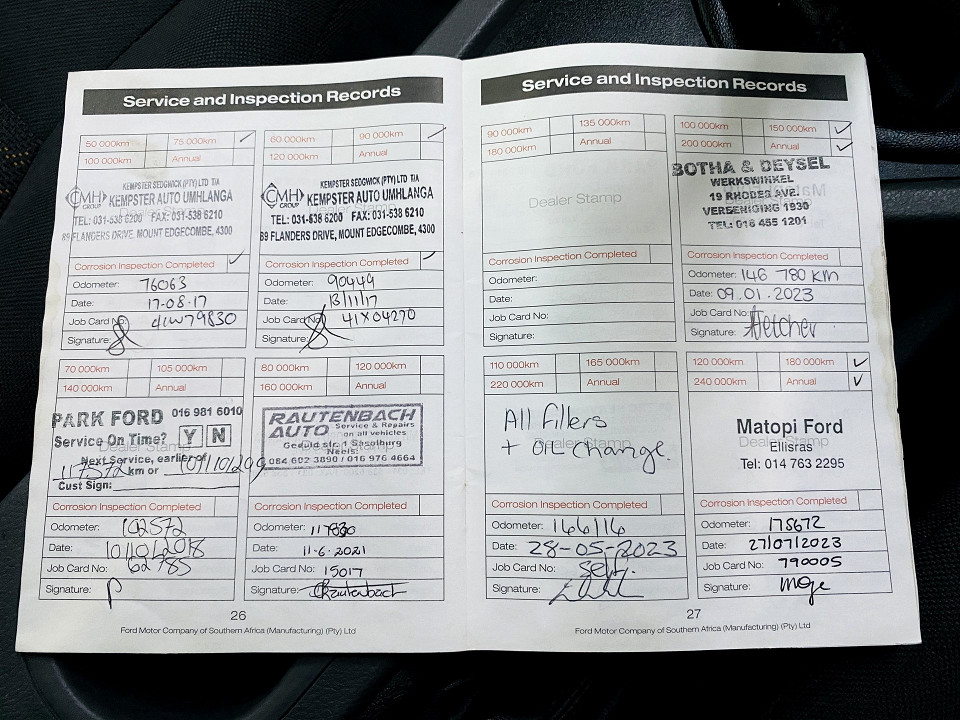 Service and Inspection Records
50 000km 75 000km ✓
100 000km Annual
KEMPSTER SEDGWICK (PTY) LTD T/A
CMH GROUP KEMPSTER AUTO UMHLANGA
TEL: 031-538 6200 FAX: 031-538 6210
89 FLANDERS DRIVE, MOUNT EDGECOMBE, 4300
Corrosion Inspection Completed ✓
Odometer: 76063
Date: 17-08-17
Job Card No: 41W79830
Signature:
60 000km 90 000km ✓
120 000km Annual
KEMPSTER SEDGWICK (PTY) LTD T/A
CMH GROUP KEMPSTER AUTO UMHLANGA
TEL: 031-538 6200 FAX: 031-538 6210
89 FLANDERS DRIVE, MOUNT EDGECOMBE, 4300
Corrosion Inspection Completed ✓
Odometer: 90449
Date: 13/11/17
Job Card No: 41X04270
Signature:
70 000km 105 000km
140 000km Annual
PARK FORD 016 981 6010
Service On Time? Y N
Dealer Stamp
Next Service, earlier of
117572 km or
Cust Sign:
Corrosion Inspection Completed
Odometer: 102572
Date: 10/10/2018
Job Card No: 62785
Signature:
80 000km 120 000km
160 000km Annual
RAUTENBACH
AUTO Service & Repairs
on all vehicles
Geduld str. 1 Sasolburg
Neels:
084 602 3890 / 016 976 4664
Corrosion Inspection Completed
Odometer:
Date: 11-6-2021
Job Card No: 15017
Signature: Rautenbach
26
Ford Motor Company of Southern Africa (Manufacturing) (Pty) Ltd
Service and Inspection Records
90 000km 135 000km
180 000km Annual
Dealer Stamp
Corrosion Inspection Completed
Odometer:
Date:
Job Card No:
Signature:
100 000km 150 000km ✓
200 000km Annual ✓
BOTHA & DEYSEL
WERKSWINKEL
19 RHODES AVE.
VEREENIGING 1930
TEL: 016 455 1201
Corrosion Inspection Completed
Odometer: 146 780 km
Date: 09.01.2023
Job Card No:
Signature: Fletcher
110 000km 165 000km
220 000km Annual
All fillers
Dealer Stamp
+ oil change.
Corrosion Inspection Completed
Odometer: 166116
Date: 28-05-2023
Job Card No: self.
Signature:
120 000km 180 000km ✓
240 000km Annual ✓
Matopi Ford
Ellisras
Tel: 014 763 2295
Corrosion Inspection Completed
Odometer: 178672
Date: 27/07/2023
Job Card No: 790005
Signature:
27
Ford Motor Company of Southern Africa (Manufacturing) (Pty) Ltd